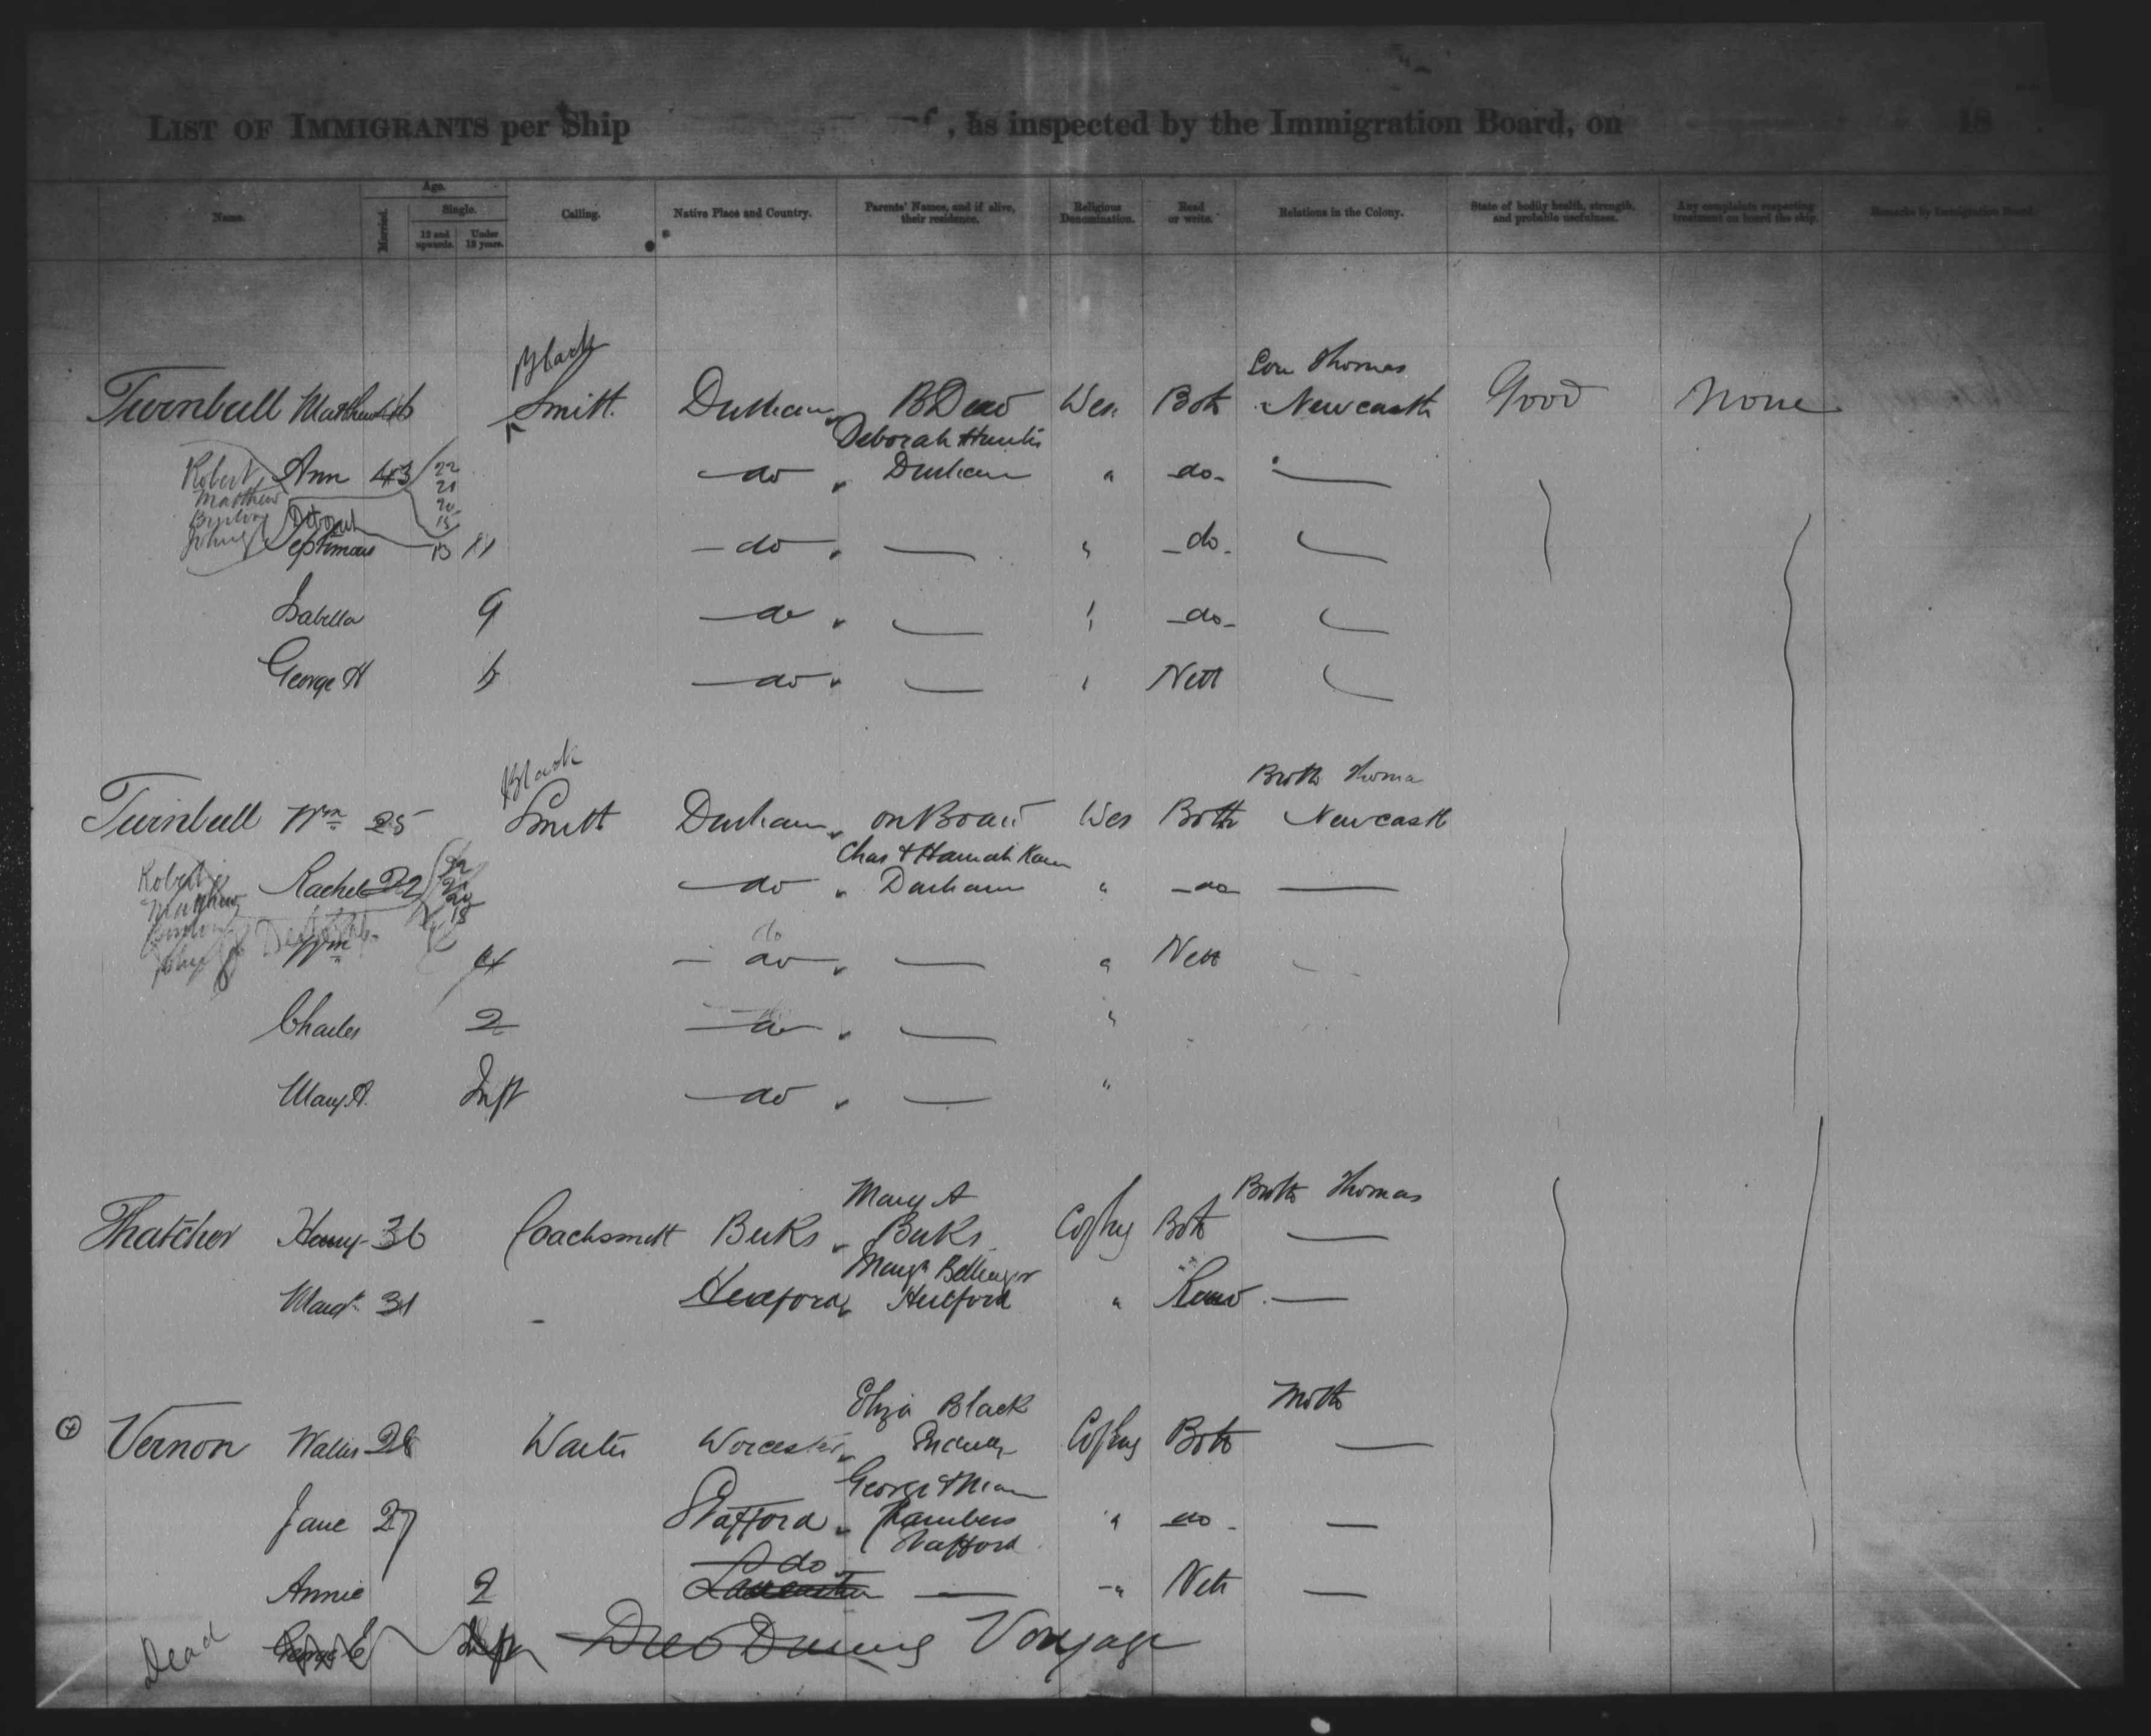 LIST OF IMMIGRANTS per Ship , as inspected by the Immigration Board, on 18
Name. Age. Calling. Native Place and Country. Parents' Names, and if alive, their residence. Religious Denomination. Read or write. Relations in the Colony. State of bodily health, strength, and probable usefulness. Any complaints respecting treatment on board the ship. Remarks by Immigration Board.
Married. Single. 12 and upwards. Under 12 years.
Black Son Thomas
Turnbull Matthew 46 Smith Durham B Dead Wes Both Newcastle Good None
Deborah Hunter
Robert Ann 43 22 do Durham " do
Matthew 21
20
John Deborah 15
Septimus 13 11 do " do
Isabella 9 do " do
George H do " Neit
Black Broth Thomas
Turnbull Wm 25 Smith Durham on Board Wes Both Newcastle
Chas & Hannah
Robert Rachel 22 22 do Durham " do
Matthew 21
20
15
John Deborah do
Wm 4 do " Neit
Charles 2 do "
Mary A Inft do "
Mary A Broth Thomas
Thatcher Henry 36 Coachsmith Berks Berks C of Eng Both
Mary Bellinger
Margt 31 Hertford Hertford " Read
Eliza Black Moth
Vernon Walter 28 Waiter Worcester Sydney C of Eng Both
George &
Jane 27 Stafford Chambers " do
Stafford
do
Annie 2 Lancaster " Neit
Dead George E Inft Died During Voyage